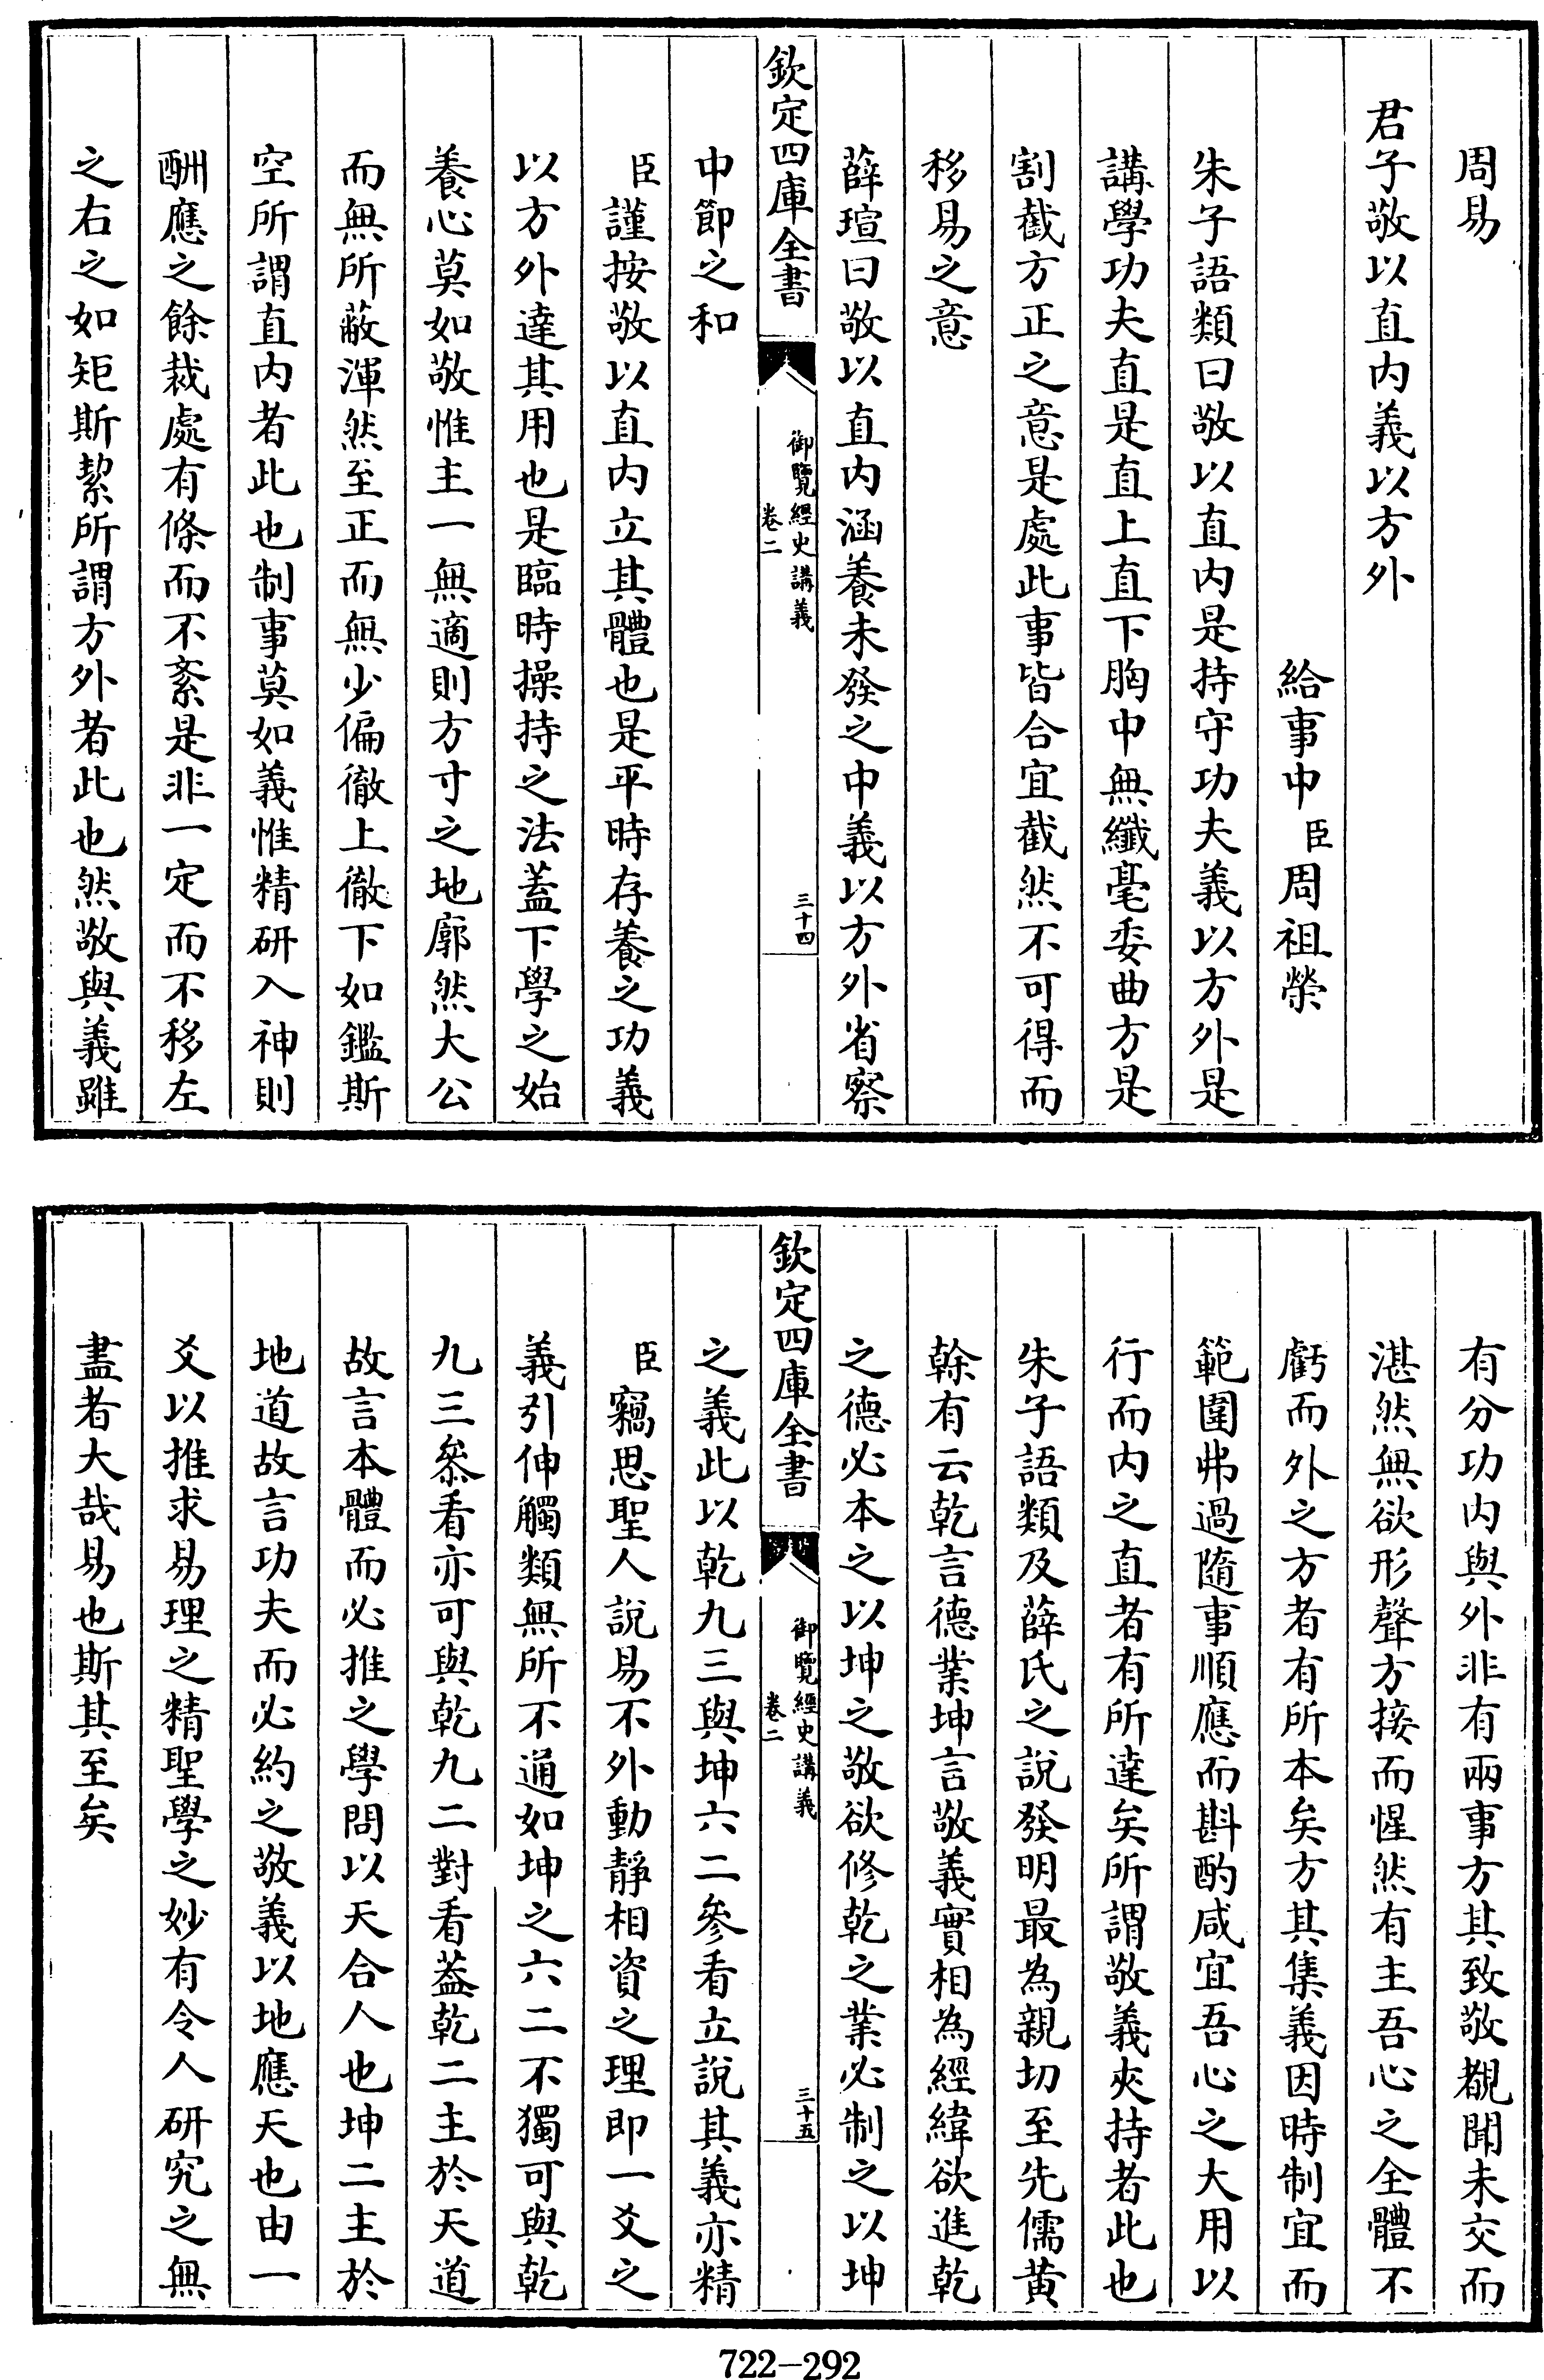 周易
君子敬以直内義以方外
給事中臣周祖榮
朱子語類曰敬以直内是持守功夫義以方外是
講學功夫直是直上直下胸中無纖毫委曲方是
割截方正之意是處此事皆合宜截然不可得而
移易之意
薛瑄曰敬以直内涵養未發之中義以方外省察
欽定四庫全書
御覽經史講義
卷二
三十四
中節之和
臣謹按敬以直内立其體也是平時存養之功義
以方外達其用也是臨時操持之法蓋下學之始
養心莫如敬惟主一無適則方寸之地廓然大公
而無所蔽渾然至正而無少偏徹上徹下如鑑斯
空所謂直内者此也制事莫如義惟精研入神則
酬應之餘裁處有條而不紊是非一定而不移左
之右之如矩斯絜所謂方外者此也然敬與義雖
有分功内與外非有兩事方其致敬覩聞未交而
湛然無欲形聲方接而惺然有主吾心之全體不
虧而外之方者有所本矣方其集義因時制宜而
範圍弗過隨事順應而斟酌咸宜吾心之大用以
行而内之直者有所達矣所謂敬義夾持者此也
朱子語類及薛氏之說發明最為親切至先儒黄
榦有云乾言德業坤言敬義實相為經緯欲進乾
之德必本之以坤之敬欲修乾之業必制之以坤
欽定四庫全書
御覽經史講義
卷二
三十五
之義此以乾九三與坤六二參看立說其義亦精
臣竊思聖人說易不外動靜相資之理即一爻之
義引伸觸類無所不通如坤之六二不獨可與乾
九三叅看亦可與乾九二對看葢乾二主於天道
故言本體而必推之學問以天合人也坤二主於
地道故言功夫而必約之敬義以地應天也由一
爻以推求易理之精聖學之妙有令人研究之無
盡者大哉易也斯其至矣
722—292